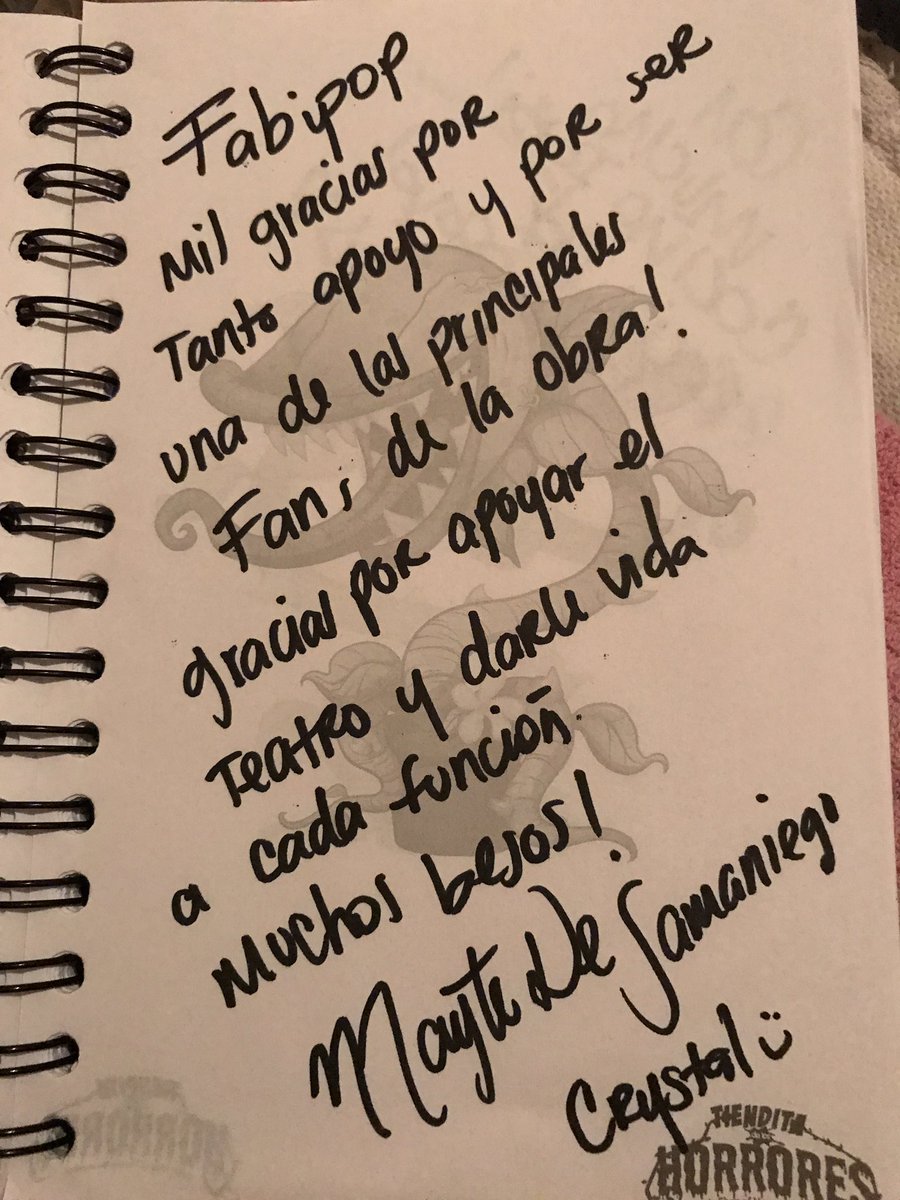 Fabipop
Mil gracias por
Tanto apoyo y por ser
una de las principales
Fans de la obra!
gracias por apoyar el
Teatro y darle vida
a cada función.
Muchos besos!
Mayte De Samaniego
Crystal :)
TIENDITA
HORRORES
HORRORES